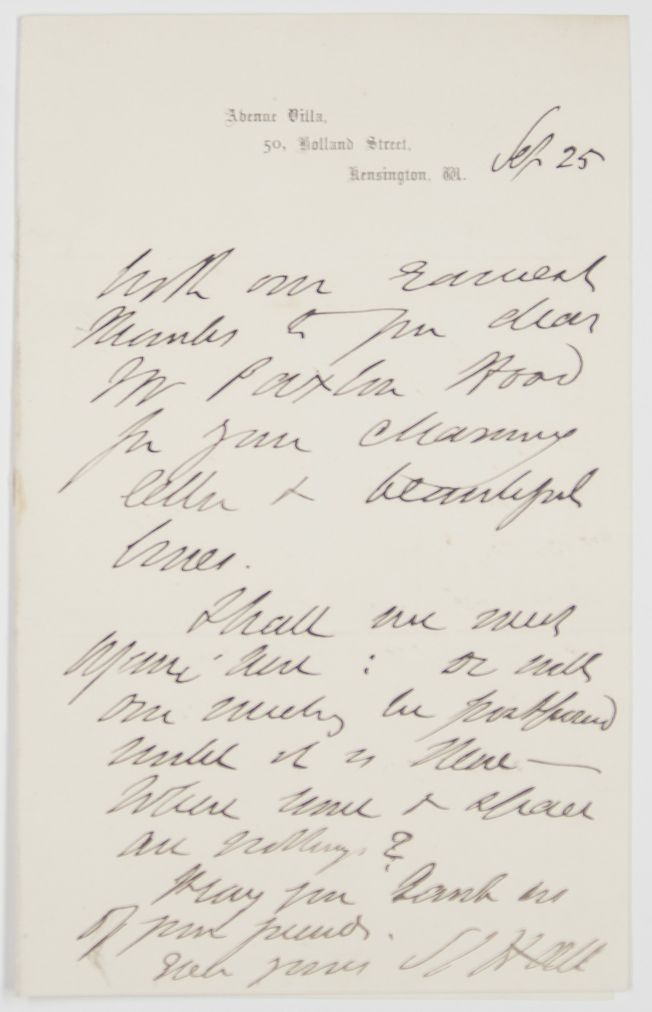 Avenue Villa,
50, Holland Street,
Kensington, W.
Sep 25
With our Earnest
thanks to you dear
Mr Paxton Hood
for your charming
letter & beautiful
lines.
Shall we meet
again here : or will
our meeting be postponed
until it is There —
Where time & space
are nothings?
May you rank us
of your friends.
Ever yours S C Hall